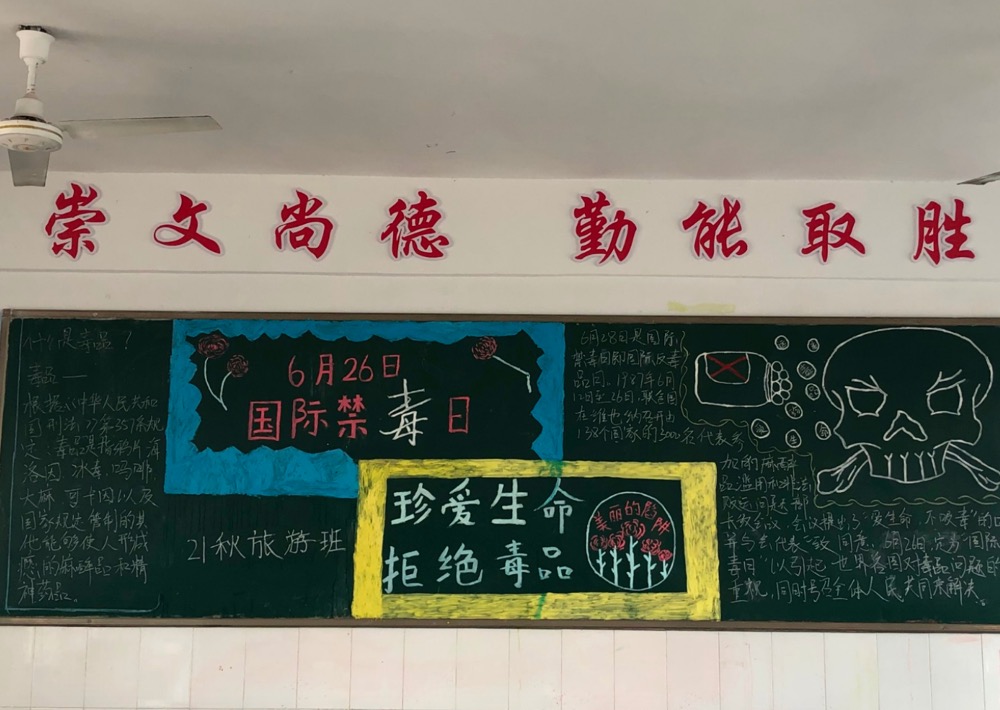 崇文尚德 勤能取胜
什么是毒品？
毒品——
根据《中华人民共和
国刑法》第357条规
定，毒品是指鸦片、海
洛因、冰毒、吗啡、
大麻、可卡因以及
国家规定管制的其
他能够使人形成
瘾的麻醉品和精
神药品。
6月26日
国际禁毒日
21秋旅游班
珍爱生命
拒绝毒品
美丽的陷阱
6月28日是国际
禁毒日即国际反毒
品日。1987年6月
12日至26日，联合国
在维也纳召开由
138个国家的3000名代表参
加的麻醉
品滥用和非法
贩运问题部
长级会议，会议提出了“爱生命，不吸毒”的口
并与会代表一致同意6月26日定为国际
毒日，以引起世界各国对毒品问题的
重视，同时号召全体人民共同来解决。